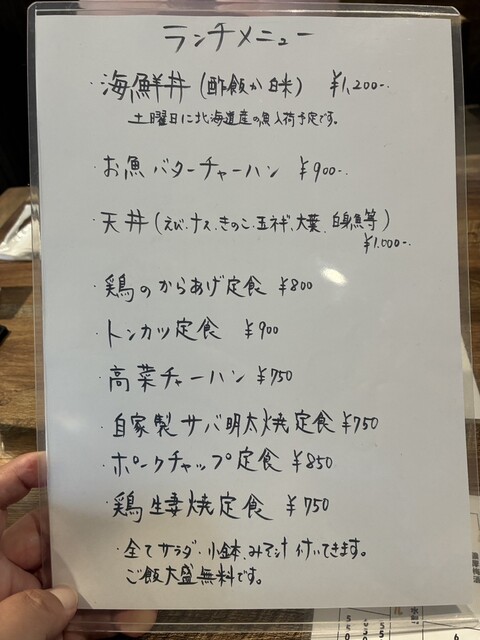 ランチメニュー
・海鮮丼（酢飯か白米） ￥1,200-.
土曜日に北海道産の魚入荷予定です。
・お魚バターチャーハン ￥900-.
・天丼（えび、ナス、きのこ、玉ネギ、大葉、白身魚等）
￥1,000-.
・鶏のからあげ定食 ￥800
・トンカツ定食 ￥900
・高菜チャーハン ￥750
・自家製サバ明太焼定食 ￥750
・ポークチャップ定食 ￥850
・鶏生姜焼定食 ￥750
・全てサラダ・小鉢、みそ汁付いてきます。
ご飯大盛無料です。